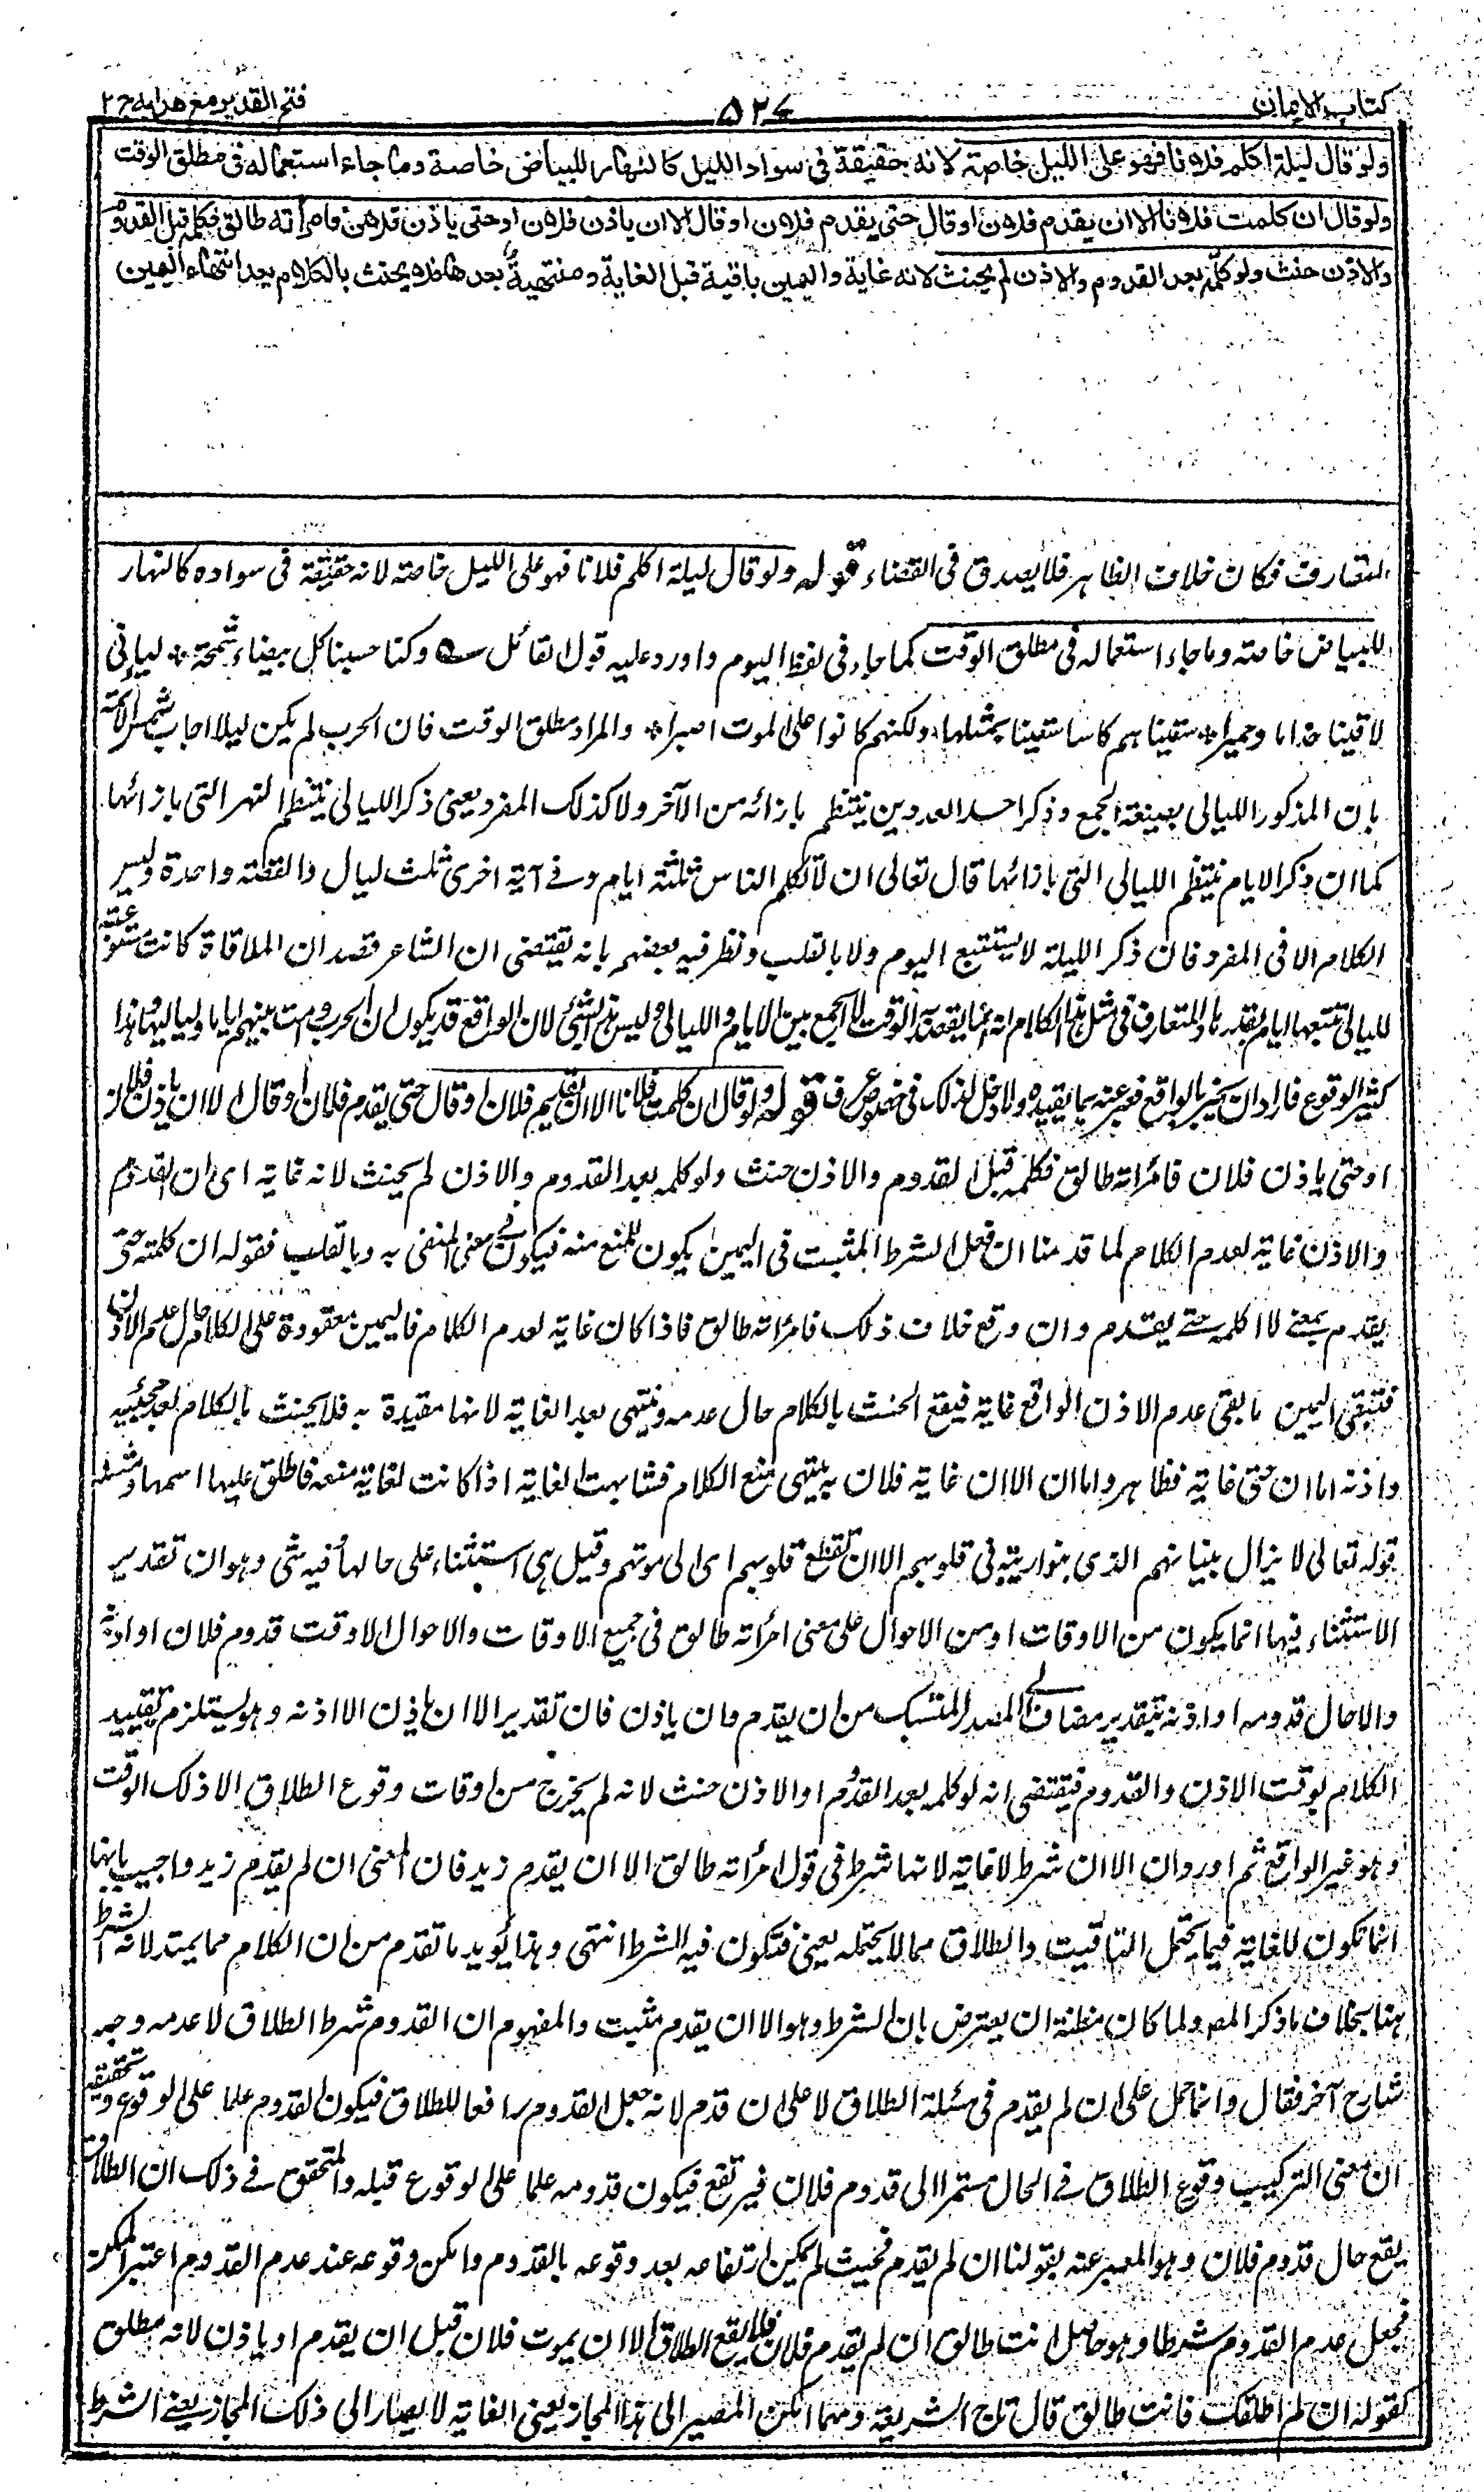 كتاب الايمان
٥٢٧
فتح القدير مع هدايه ج٢
ولو قال ليلة اكلم فلانا فهو على الليل خاصة لانه حقيقة فى سواد الليل كالنهار للبياض خاصة وما جاء استعماله فى مطلق الوقت
ولو قال ان كلمت فلانا الا ان يقدم فلان او قال حتى يقدم فلان او قال الا ان ياذن فلان او حتى ياذن فلان فامرأته طالق فكلمه قبل القدوم
والاذن حنث ولو كلمه بعد القدوم والاذن لم يحنث لانه غاية واليمين باقية قبل الغاية ومنتهية بعدها فلا يحنث بالكلام بعد انتهاء اليمين
المتعارف فكان خلاف الظاهر فلا يصدق فى القضاء قوله ولو قال ليلة اكلم فلانا فهو على الليل خاصة لانه حقيقة فى سواده كالنهار
للبياض خاصة وما جاء استعماله فى مطلق الوقت كما جاء فى لفظ اليوم واورد عليه قول القائل ؎ وكنا حسبنا كل بيضاء شحمة * ليالى
لاقينا جذاما وحميرا * سقيناهم كاسا سقينا بمثلها * ولكنهم كانوا على الموت اصبرا * والمراد مطلق الوقت فان الحرب لم يكن ليلا اجاب شمس الائمة
بان المذكور الليالى بصيغة الجمع وذكر احد العددين ينتظم بازائه من الآخر ولا كذلك المفرد يعنى ذكر الليالى ينتظم النهر التى بازائها
كما ان ذكر الايام ينتظم الليالى التى بازائها قال تعالى ان لا تكلم الناس ثلثة ايام وفى آية اخرى ثلث ليال والقصة واحدة وليس
الكلام الا فى المفرد فان ذكر الليلة لا يستتبع اليوم ولا بالقلب ونظر فيه بعضهم بانه يقتضى ان الشاعر قصد ان الملاقاة كانت متنوعة
لليالى تتبعها ايام بقدرها والمتعارف فى مثل هذا الكلام انه انما يقصد به الوقت لا الجمع بين الايام والليالى وليس هذا بشئ لان الواقع قد يكون ان الحرب دامت بينهم اياما ولياليها هذا
كثير الوقوع فاراد ان يخبر بالواقع فعبر عنه بما يقيده ولا دخل لذلك فى خصوص عرف قوله ولو قال ان كلمت فلانا الا ان يقدم فلان او قال حتى يقدم فلان او قال الا ان ياذن فلان
او حتى ياذن فلان فامرأته طالق فكلمه قبل القدوم والاذن حنث ولو كلمه بعد القدوم والاذن لم يحنث لانه غاية اى ان القدوم
والاذن غاية لعدم الكلام لما قدمنا ان فعل الشرط المثبت فى اليمين يكون للمنع منه فيكون فى معنى المنفى به وبالقلب فقوله ان كلمته حتى
يقدم بمعنى لا اكلمه حتى يقدم وان وقع خلاف ذلك فامرأته طالق فاذا كان غاية لعدم الكلام فاليمين معقودة على الكلام حال عدم الاذن
فتبقى اليمين ما بقى عدم الاذن الواقع غاية فيقع الحنث بالكلام حال عدمه وينتهى بعد الغاية لانها مقيدة به فلا يحنث بالكلام بعد مجيئه
واذنه اما ان حتى غاية فظاهر واما ان الا ان غاية فلان به ينتهى منع الكلام فشابهت الغاية اذا كانت لغاية منعه فاطلق عليها اسمها ومثله
قوله تعالى لا يزال بنيانهم الذى بنوا ريبة فى قلوبهم الا ان تقطع قلوبهم اى الى موتهم وقيل هى استثناء على حالها فيه شئ وهو ان تقدير
الاستثناء فيها انما يكون من الاوقات او من الاحوال على معنى امرأته طالق فى جميع الاوقات والاحوال الا وقت قدوم فلان او اذنه
والا حال قدومه او اذنه بتقدير مضاف الى المصدر المنسبك من ان يقدم وان ياذن فان تقدير الا ان ياذن الا اذنه وهو يستلزم تقييد
الكلام بوقت الاذن والقدوم فيقتضى انه لو كلمه بعد القدوم او الاذن حنث لانه لم يخرج من اوقات وقوع الطلاق الا ذلك الوقت
وهو غير الواقع ثم اورد ان الا ان شرط لا غاية لانها شرط فى قول امرأته طالق الا ان يقدم زيد فان المعنى ان لم يقدم زيد واجيب بانها
انما تكون للغاية فيما يحتمل التاقيت والطلاق مما لا يحتمله يعنى فتكون فيه للشرط انتهى وهذا يؤيد ما تقدم من ان الكلام مما يمتد لانه الشرط
هنا بخلاف ما ذكر المص ولما كان مظنة ان يعترض بان الشرط وهو الا ان يقدم مثبت والمفهوم ان القدوم شرط الطلاق لا عدمه وجه
شارح آخر فقال وانما حمل على ان لم يقدم فى مسئلة الطلاق لا على ان قدم لانه جعل القدوم رافعا للطلاق فيكون القدوم علما على الوقوع وتحقيقه
ان معنى التركيب وقوع الطلاق فى الحال مستمرا الى قدوم فلان فيرتفع فيكون قدومه علما على الوقوع قبله والمتحقق فى ذلك ان الطلاق
يقع حال قدوم فلان وهو المعبر عنه بقولنا ان لم يقدم فحيث لم يمكن ارتفاعه بعد وقوعه بالقدوم وامكن وقوعه عند عدم القدوم اعتبر الممكن
فجعل عدم القدوم شرطا وهو حاصل انت طالق ان لم يقدم فلان فلا يقع الطلاق الا ان يموت فلان قبل ان يقدم او ياذن لانه مطلق
كقوله ان لم اطلقك فانت طالق قال تاج الشريعة ومهما امكن المصير الى هذا المجاز يعنى الغاية لا يصار الى ذلك المجاز يعنى الشرط